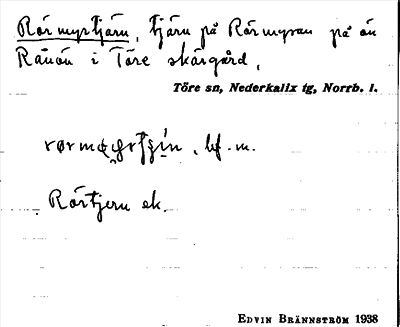 Rörmyrtjärn, tjärn på Rörmyran på ön
Rånön i Töre skärgård.
Töre sn, Nederkalix tg, Norrb. l.
bf. m.
Rörtjern ek.
EDVIN BRÄNNSTRÖM 1938